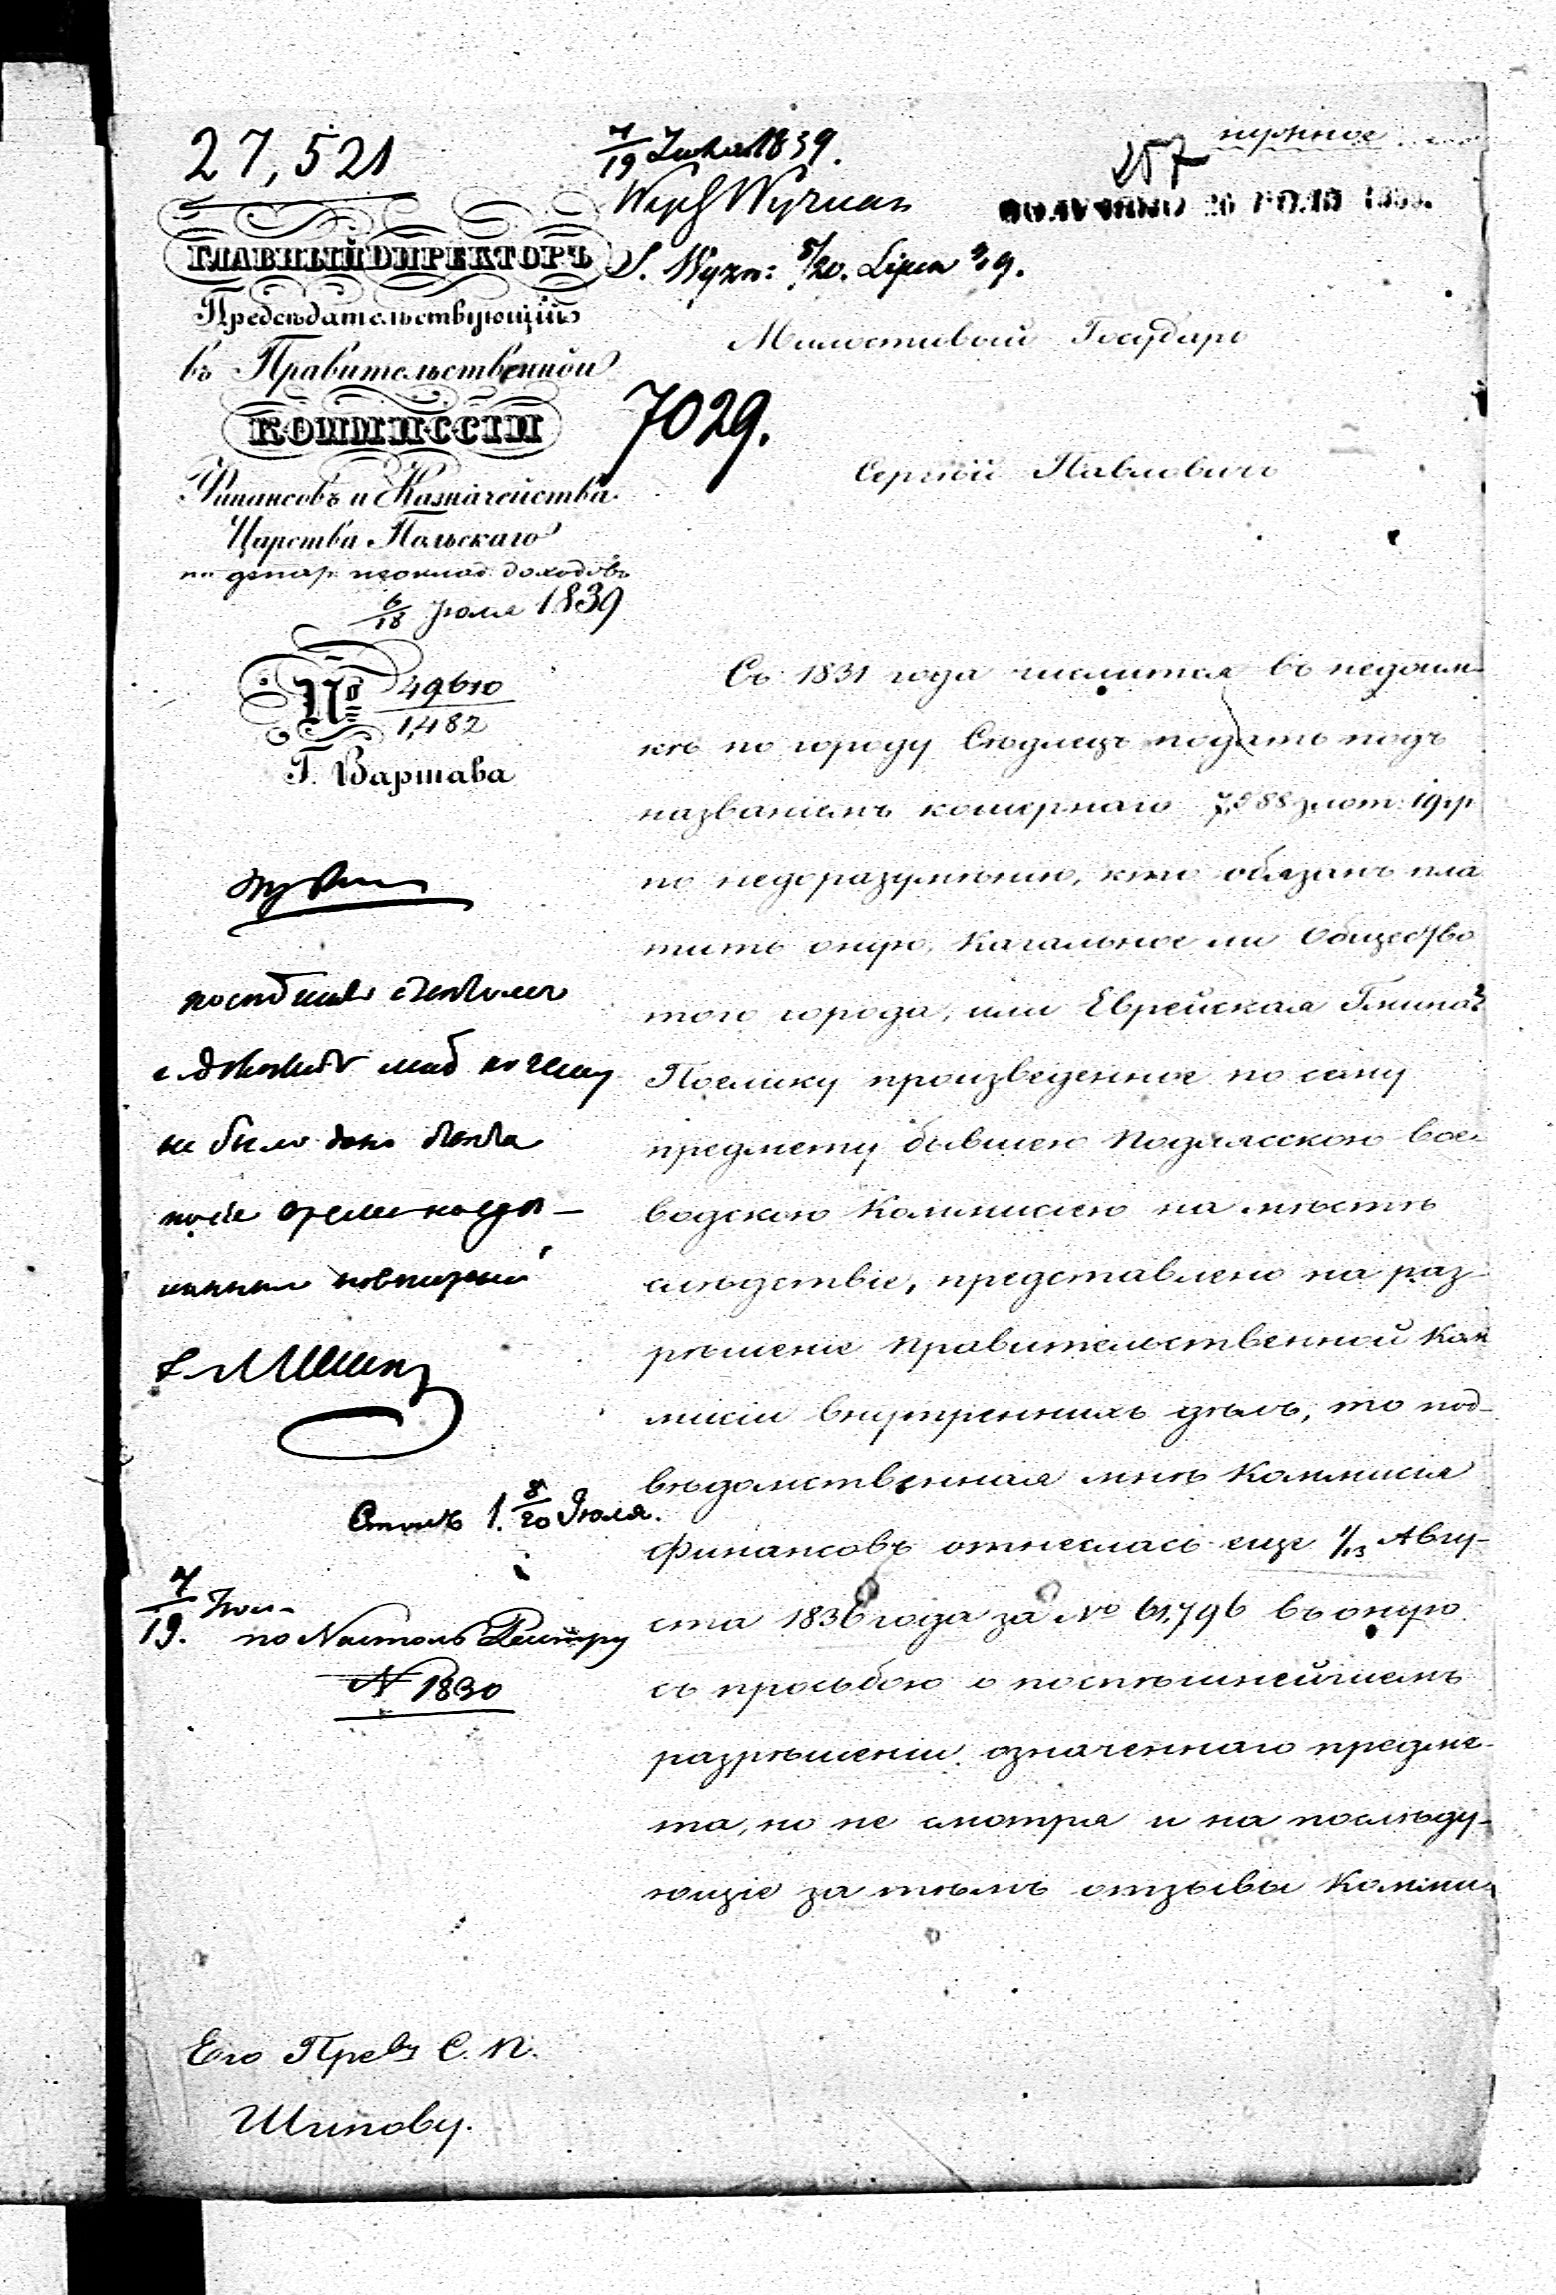 27,521
7/19 1839.
257
нужное
S. Wyzn: 8/20. Lipca 39.
ГЛАВНЫЙ ДИРЕКТОРЪ
Предсѣдательствующій
въ Правительственной
КОММИССІИ
Финансовъ и Казначейства
Царства Польскаго
по депар. неоклад. доходовъ
6/18 Іюля 1839
№ 49610/1,482
Г. Варшава
7029.
Милостивый Государь
Сергѣй Павловичь
Съ 1831 года числится въ недоим-
кѣ по городу Сѣдлецъ подать подъ
названіемъ кошернаго злот: 19 гр
по недоразумѣнію, кто обязанъ пла
тить оную, Кагальное ли Общество
того города, или Еврейская Гмина?
Поелику произведенное по сему
предмету бывшею Подлясскою Вое-
водскою Коммисіею на мѣстѣ
слѣдствіе, представлено на раз-
рѣшеніе Правительственной Ком
мисіи Внутреннихъ дѣлъ, то под-
вѣдомственная мнѣ Коммисія
Финансовъ отнеслась еще 1/13 Авгу-
ста 1836 года за № 61,796 въ оную
съ просьбою о поспѣшнейшемъ
разрѣшеніи означеннаго предме-
та, но не смотря и на послѣду-
ющіе за тѣмъ отзывы Коммис
не было дано
8/20 Іюля.
7/19. Іюл
по Настоль Реестру
N 1830
Его Прев. С. П.
Шипову.